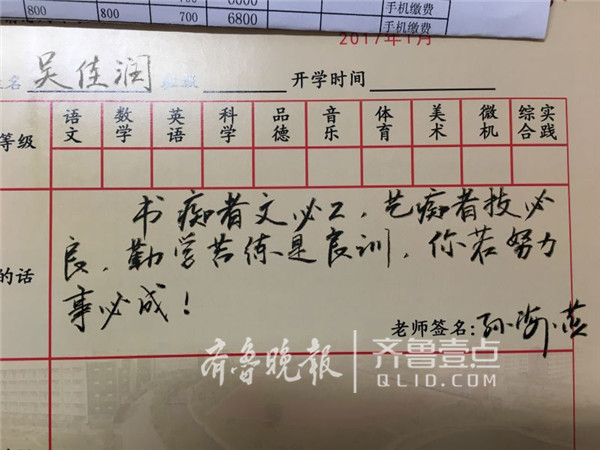 6000 手机缴费
800 800 700 6800 手机缴费
2017年1月
姓名 吴佳润 班级 开学时间
等级 语文 数学 英语 科学 品德 音乐 体育 美术 微机 综合实践
书痴者文必工,艺痴者技必
良,勤学苦练是良训,你若努力
事必成!
的话
老师签名:孙海燕
齐鲁晚报 齐鲁壹点
QLID.COM